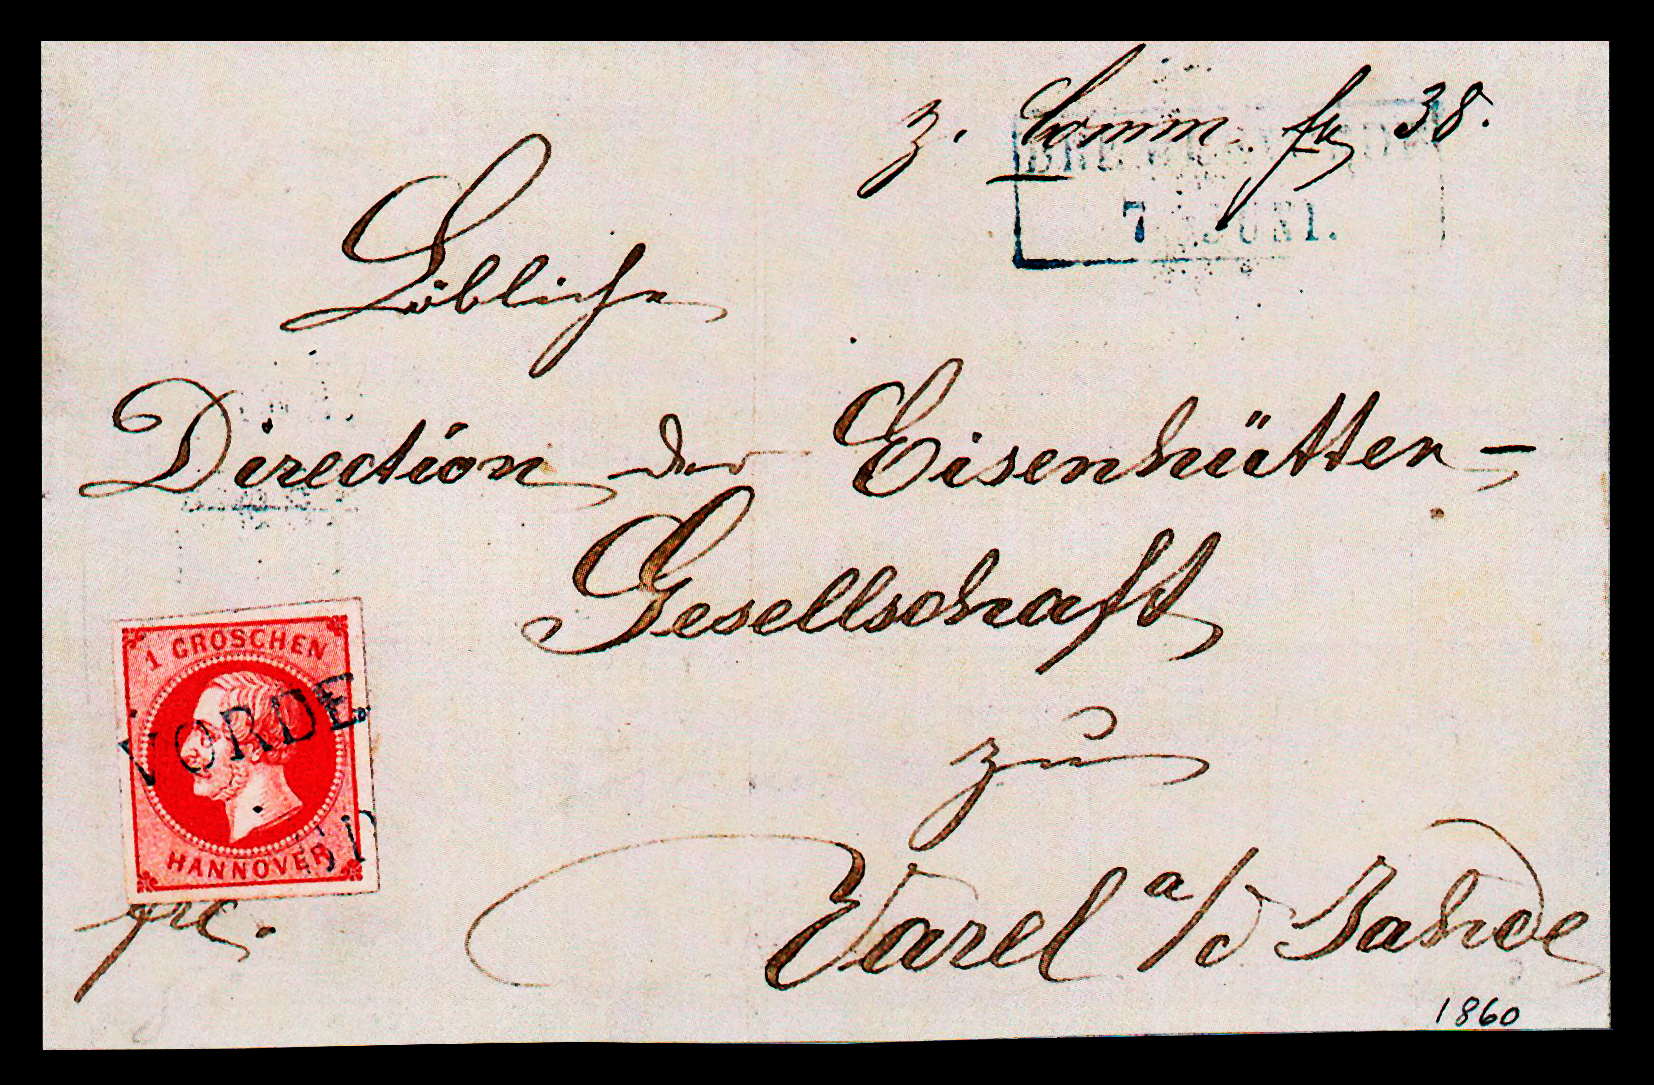 z. Comm. fr 38.
7 JUNI.
Löbliche
Direction der Eisenhütten-
Gesellschaft
zu
Varel a/d Jahde
1 GROSCHEN
VÖRDE
HANNOVER
frc.
1860